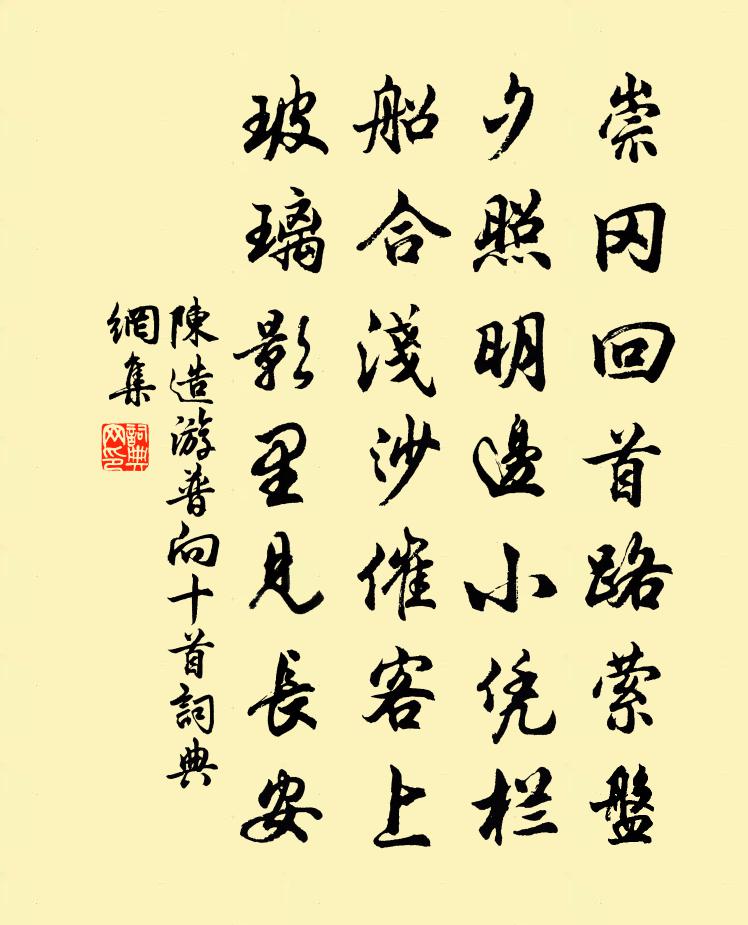 崇冈回首路萦盤
夕照明邊小凭栏
船合淺沙催客上
玻璃影里見長安
陳造游普向十首詞典
網集
詞典
网印